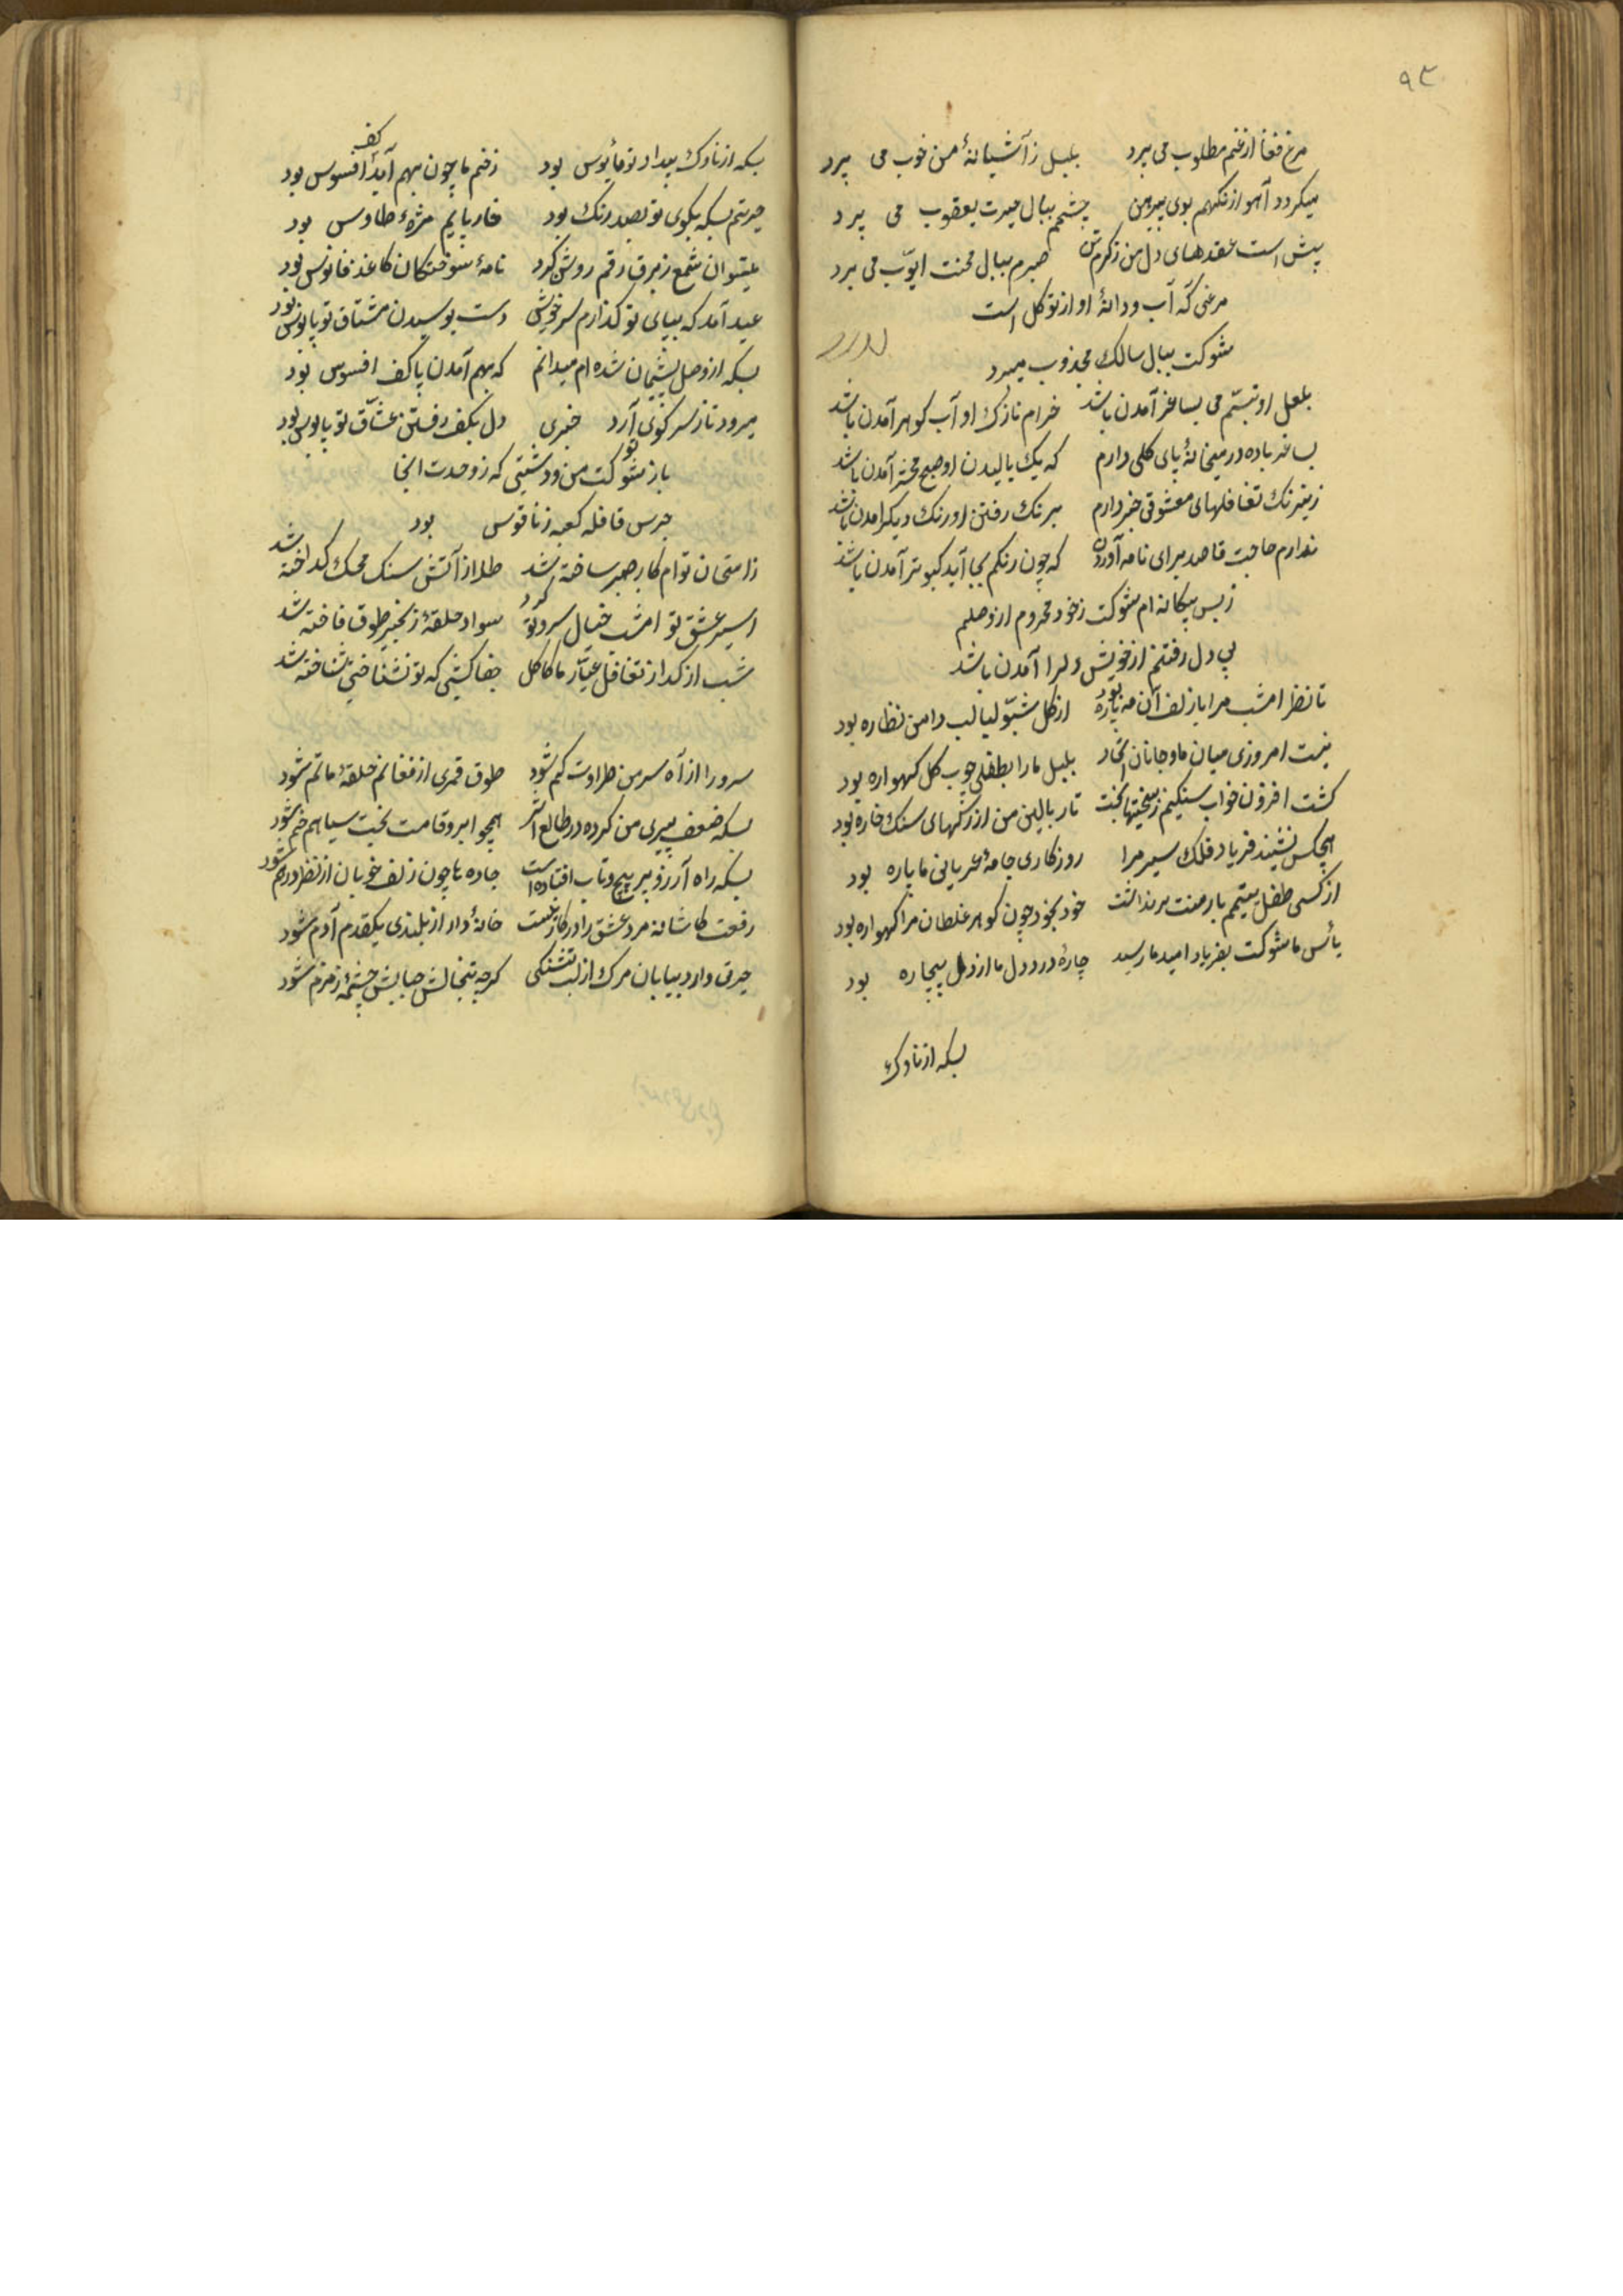 ۹۳
مرغ فغا از غم مطلوب می پرد بلبل ز آشیانهٔ من خوب می پرد
میکردد آهو از نکهم بوی پیرهن چشمم ببال حیرت یعقوب می پرد
پیش است عقدهای دل من ز کرم تن صبرم ببال محنت ایوّب می برد
مرغی که آب و دانهٔ او از توکل است
شوکت ببال سالک مجذوب میپرد
بلعل او تبسّم می بساغر آمدن باشد خرام نازک او آب کوهر آمدن باشد
بساغر باده در میخانهٔ پای کلی دارم که یک بالیدن او صبح محشر آمدن باشد
ز نیرنک تغافلهای معشوقی خبر دارم برنک رفتن او رنک دیکر امدن باشد
ندارم حاجت قاصد برای نامه آوردن که چون رنکم بجا آید کبوتر آمدن باشد
ز بس بیکانه ام شوکت ز خود محروم از وصلم
پی دل رفتنم از خویش دلبر ا آمدن باشد
تا نظر امشب مرا با زلف آن مه پاره بود از کل شبّو لبالب دامن نظاره بود
نیست امروزی میان ما و جانان اتحاد بلبل ما را بطفلی چوب کل کهواره بود
کشت افزون خواب سنکینم ز سختیهای بخت تار بالین من از رکهای سنک خاره بود
هیچکس نشنید فریاد فلک سیر مرا روزکاری جامهٔ عریانی ما پاره بود
از کسی طفل یتیمم بار منت برنداشت خود بخود چون کوهر غلطان مرا کهواره بود
یأس ما شوکت بفریاد امید ما رسید چارهٔ درد دل ما از دل بیچاره بود
بسکه از ناوک
بسکه از ناوک بیداد تو مأیوس بود زخم ما چون بهم آید کف افسوس بود
حیرتم بسکه بکوی تو بصد رنک بود خار پایم مژهٔ طاوس بود
میتوان شمع ز برق رقم روشن کرد نامهٔ سوختکان کاغذ فانوس بود
عید آمد که بپای تو کذارم سر خویش دست بوسیدن مشتاق تو پابوس بود
بسکه از وصل پشیمان شده ام میدانم که بهم آمدن پا کف افسوس بود
میرود تا ز سر کوی تو آرد خبری دل بکف رفتن عشّاق تو پابوس بود
باز شوکت من و دشتی که ز وحدت انجا
جرس قافله کعبه ز ناقوس بود
ز امتحان توام کار صبر ساخته شد طلا از آتش سنک محک کداخته شد
اسیر عشق تو امشب خیال سرو تو کرد سواد حلقهٔ زنجیر طوق فاخته شد
شب از کداز تغافل عیار ما کامل جفا کشی که تو نشناختی شناخته شد
سرو را از آه سر من طراوت کم شود طوق قمری از فغانم حلقهٔ ماتم شود
بسکه ضعف پیری من کرده در طالع اثر همچو ابرو قامت بخت سیاهم خم شود
بسکه راه آرزو بر پیچ و تاب افتاده است جاده ها چون زلف خوبان از نظر درهم شود
رفعت کاشانه مرد عشق را در کار نیست خانهٔ دار از بلندی یکقدم آدم شود
حرق دارد بیابان مرک از لب تشنکی کرچه تبخالش حبابش چشمهٔ زمزم شود